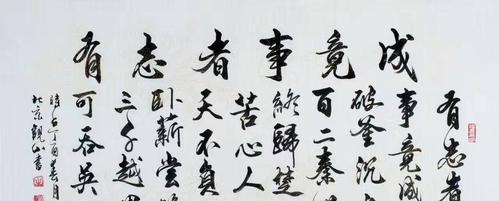 有志者事竟成
有志者
事竟成
破釜沉
百二秦
終歸楚
苦心人
天不負
卧薪嘗
三千越
可吞
丁酉春月
北京觀山書